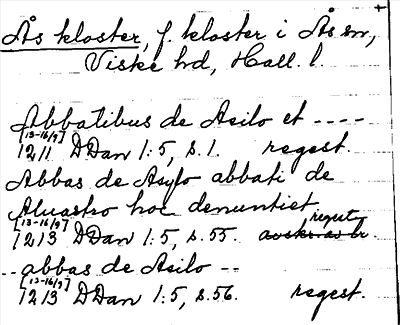 Ås kloster, f. kloster i Ås sn,
Viske hd, Hall. l.
Abbatibus de Asilo et ----
[13-16/9]
1211 DDan 1:5, s. 1. regest.
Abbas de Asylo abbati de
Aluastro hoc denuntiet
[13-16/9] regest
1213 DDan 1:5, s. 55. avskr. av br.
-- abbas de Asilo --
[13-16/9]
1213 DDan 1:5, s. 56. regest.